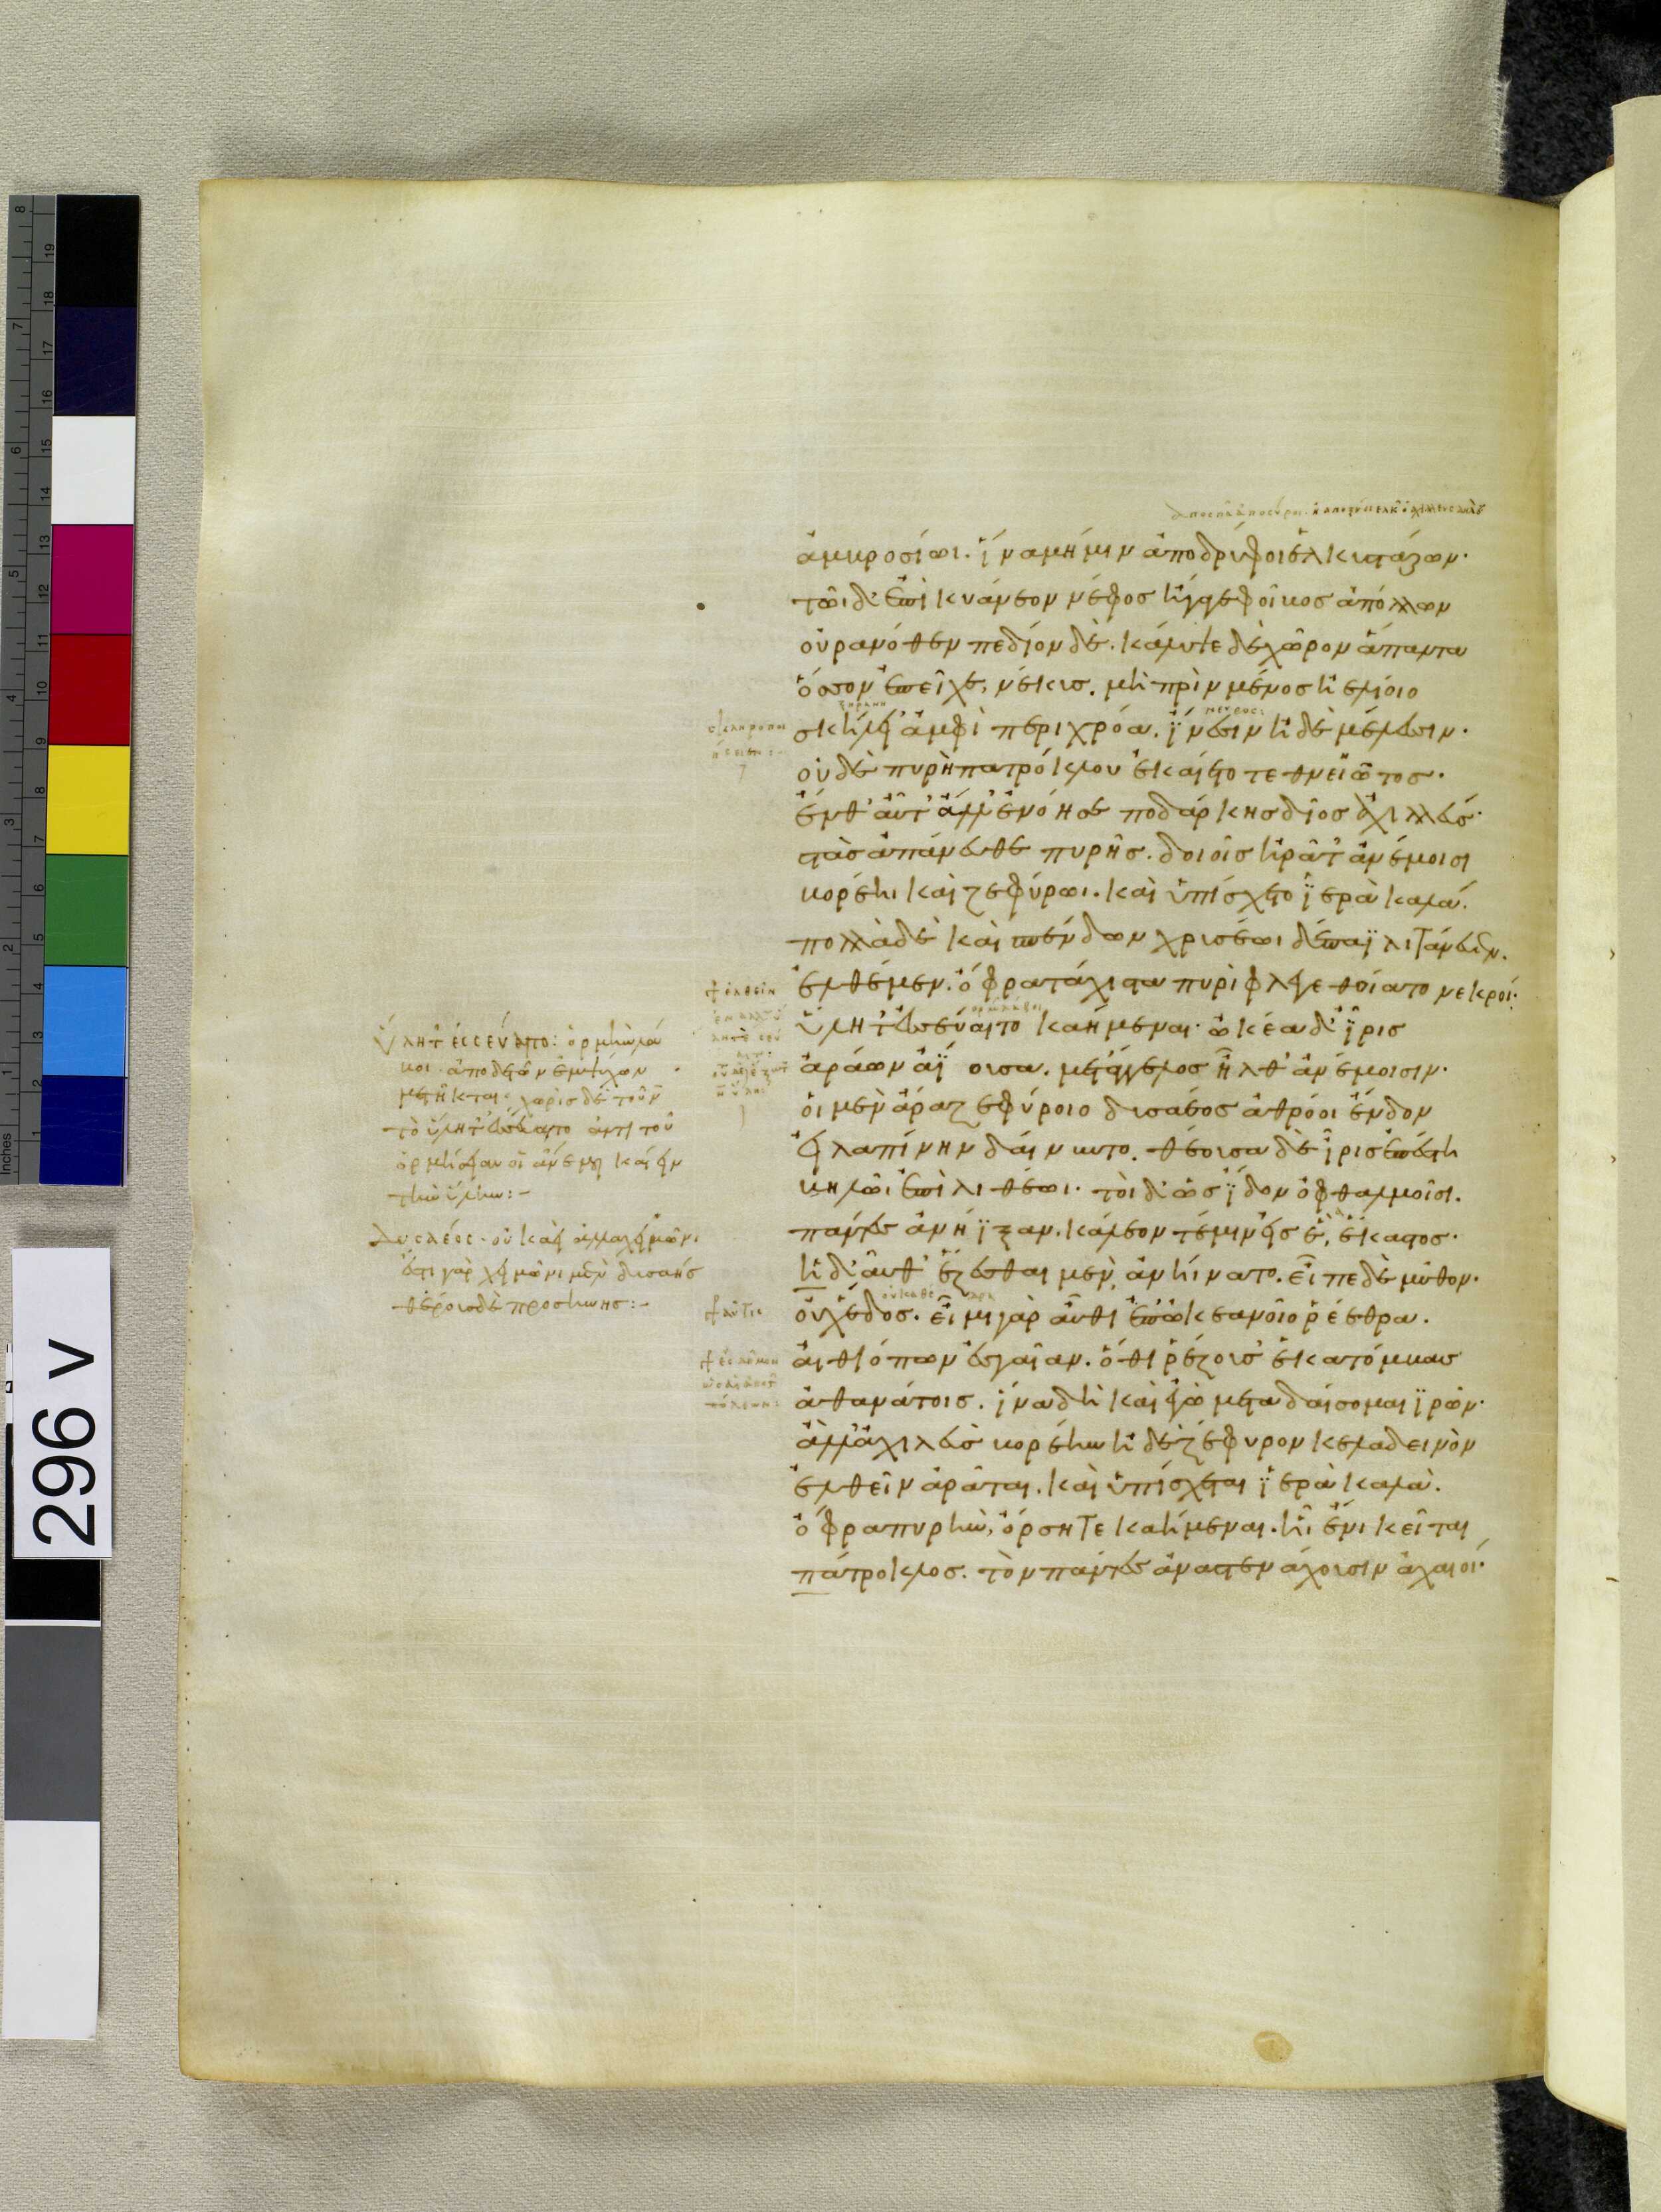 ἀμβροσίωι. ἵνα μή μιν ἀποδρύφοι ἑλκυστάζων.
τῶι δ' ἐπὶ κυάνεον νέφος ἤγαγε φοῖβος ἀπόλλων
οὐρανόθεν πεδίον δὲ. κάλυψε δὲ χῶρον ἅπαντα
ὅσσον ἐπεῖχε, νέκυς. μὴ πρὶν μένος ἠελίοιο
σκήλει' ἀμφὶ περὶ χρόα. ἵνεσιν ἠδὲ μέλεσιν.
οὐδὲ πυρὴ πατρόκλου ἐκαίετο τεθνειῶτος.
ἔνθ' αὖτ' ἄλλ' ἐνόησε ποδάρκης δῖος ἀχιλλεύς.
στὰς ἀπάνευθε πυρῆς. δοιοῖς ἠρᾶτ' ἀνέμοισι
βορέηι καὶ ζεφύρωι. καὶ ὑπίσχετο ἱερὰ καλά.
πολλὰ δὲ καὶ σπένδων χρυσέωι δέπαϊ λιτάνευεν.
ἐλθέμεν. ὄφρα τάχιστα πυρὶ φλεγεθοίατο νεκροί.
ὕλη τ' ἐσσεύαιτο καήμεναι. ὠκέα δ' ἶρις
ἀράων ἀΐουσα. μετάγγελος ἦλθ' ἀνέμοισιν.
οἱ μὲν ἄρα ζεφύροιο δυσαέος ἀθρόοι ἔνδον
εἰλαπίνην δαίνυντο. θέουσα δὲ ἶρις ἐπέστη
βηλῶι ἐπὶ λιθέωι. τοὶ δ' ὡς ἴδον ὀφθαλμοῖσι.
πάντες ἀνήϊξαν. κάλεον τέ μιν εἰς ἓ, ἕκαστος.
ἡ δ' αὖθ' ἕζεσθαι μὲν, ἀνήνατο. εἶπε δὲ μῦθον.
οὐχ ἕδος. εἶμι γὰρ αὖθι ἐπ' ὠκεανοῖο ῥέεθρα.
αἰθιόπων ἐς γαῖαν. ὅθι ῥέζουσ' ἑκατόμβας
ἀθανάτοις. ἵνα δὴ καὶ ἐγὼ μεταδαίσομαι ἱρῶν.
ἀλλ' ἀχιλεὺς βορέην ἠδὲ ζέφυρον κελαδεινὸν
ἐλθεῖν ἀρᾶται. καὶ ὑπίσχεται ἱερὰ καλὰ.
ὄφρα πυρὴν, ὄρσητε καήμεναι. ἧι ἔνι κεῖται
πάτροκλος. τὸν πάντες ἀναστενάχουσιν ἀχαιοί.
ὕλη τ' ἐσσεύαιτο:
τὸ ὕλη τ' ἐσσεύαιτο ἀντὶ τοῦ
ὁρμήσειαν οἱ ἄνεμοι καίειν
τὴν ὕλην:-
δυσαέος. οὐκ ἀεὶ ἀλλὰ χειμῶνι
ἐστὶ γὰρ χειμῶνι μὲν δυσαὴς
θέρους δὲ προσηνής:-
ἐλθεῖν
αὖτις